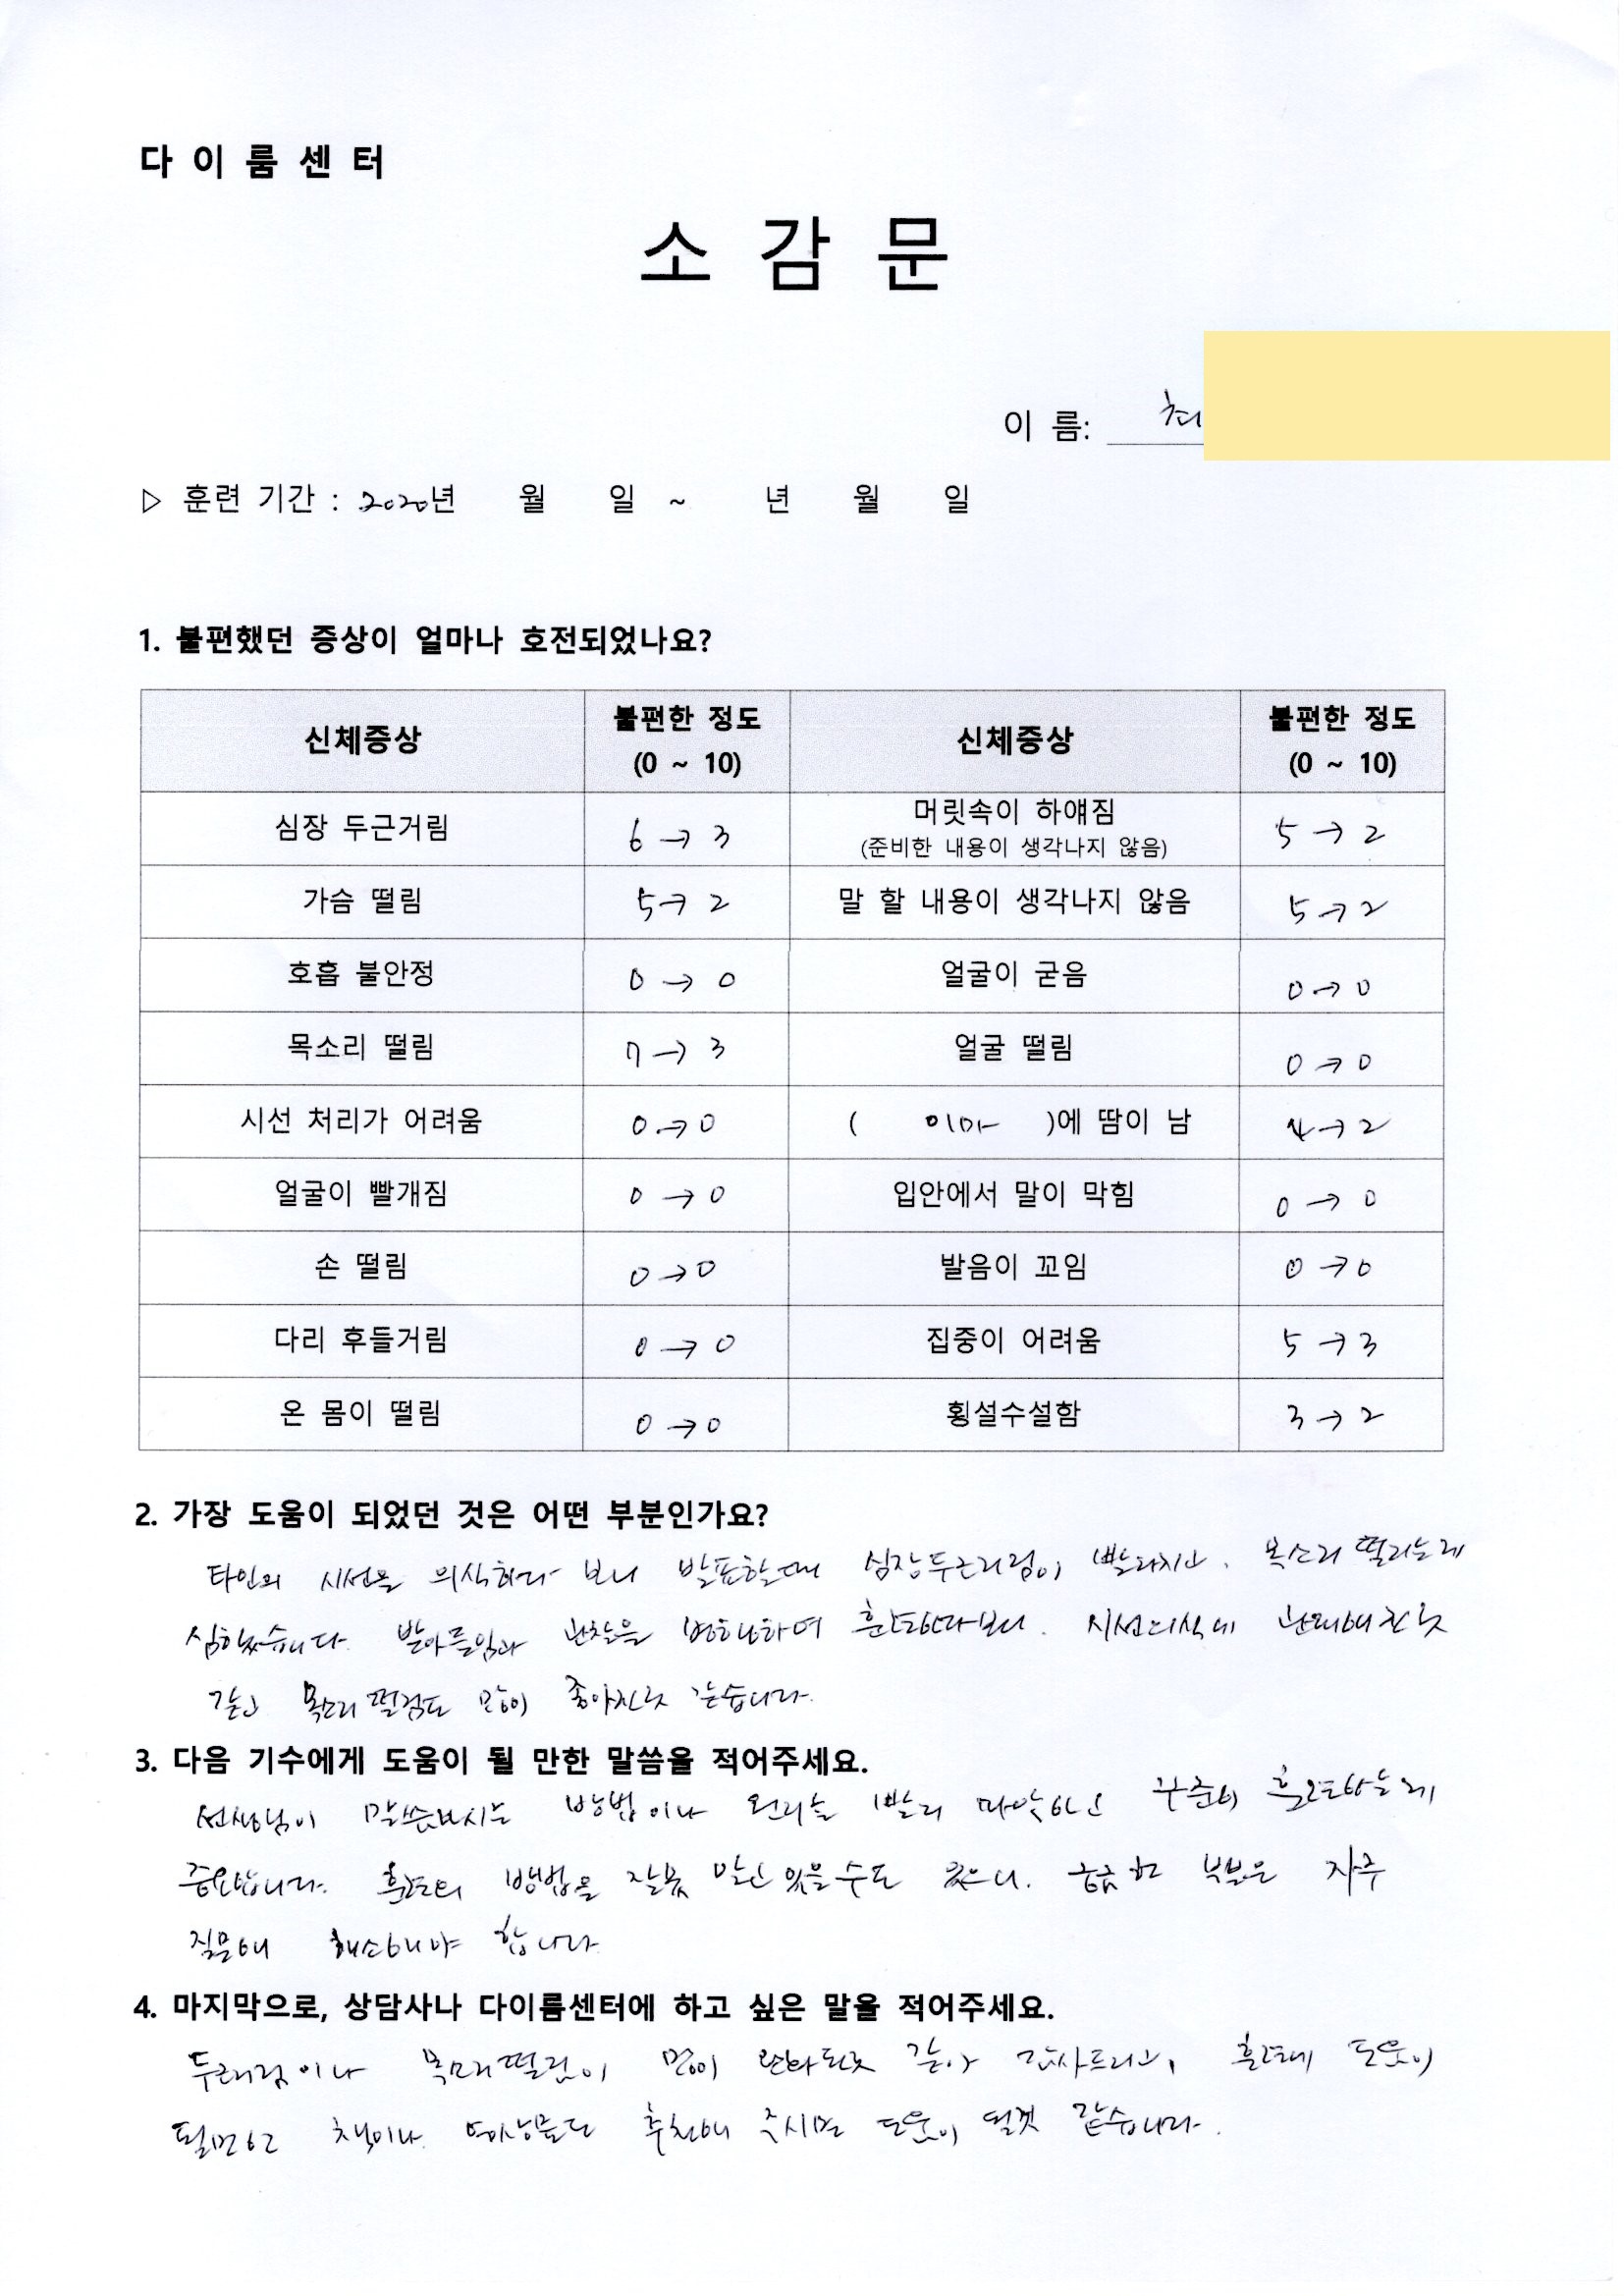 다이룸센터
소감문
이 름: 최
▷ 훈련 기간 : 2020년 월 일 ~ 년 월 일
1. 불편했던 증상이 얼마나 호전되었나요?
신체증상 불편한 정도 (0 ~ 10) 신체증상 불편한 정도 (0 ~ 10)
심장 두근거림 6 → 3 머릿속이 하얘짐 (준비한 내용이 생각나지 않음) 5 → 2
가슴 떨림 5 → 2 말 할 내용이 생각나지 않음 5 → 2
호흡 불안정 0 → 0 얼굴이 굳음 0 → 0
목소리 떨림 7 → 3 얼굴 떨림 0 → 0
시선 처리가 어려움 0 → 0 ( 이마 )에 땀이 남 4 → 2
얼굴이 빨개짐 0 → 0 입안에서 말이 막힘 0 → 0
손 떨림 0 → 0 발음이 꼬임 0 → 0
다리 후들거림 0 → 0 집중이 어려움 5 → 3
온 몸이 떨림 0 → 0 횡설수설함 3 → 2
2. 가장 도움이 되었던 것은 어떤 부분인가요?
타인의 시선을 의식하다 보니 발표할때 심장두근거림이 빨라지고. 목소리 떨리는게
심했습니다. 받아들임과 관찰을 병행하며 훈련하다보니. 시선의식에 관대해진것
같고 목소리 떨림도 많이 좋아진것 같습니다.
3. 다음 기수에게 도움이 될 만한 말씀을 적어주세요.
선생님이 말씀하시는 방법이나 원리를 빨리 파악하고 꾸준히 훈련하는게
중요합니다. 훈련의 방법을 잘못 알고 있을수도 있으니. 궁금한 부분은 자주
질문해 해소해야 합니다
4. 마지막으로, 상담사나 다이룸센터에 하고 싶은 말을 적어주세요.
두근거림이나 목소리떨림이 많이 완화된것 같아 감사드리고, 훈련에 도움이
될만한 책이나 영상물도 추천해 주시면 도움이 될것 같습니다.